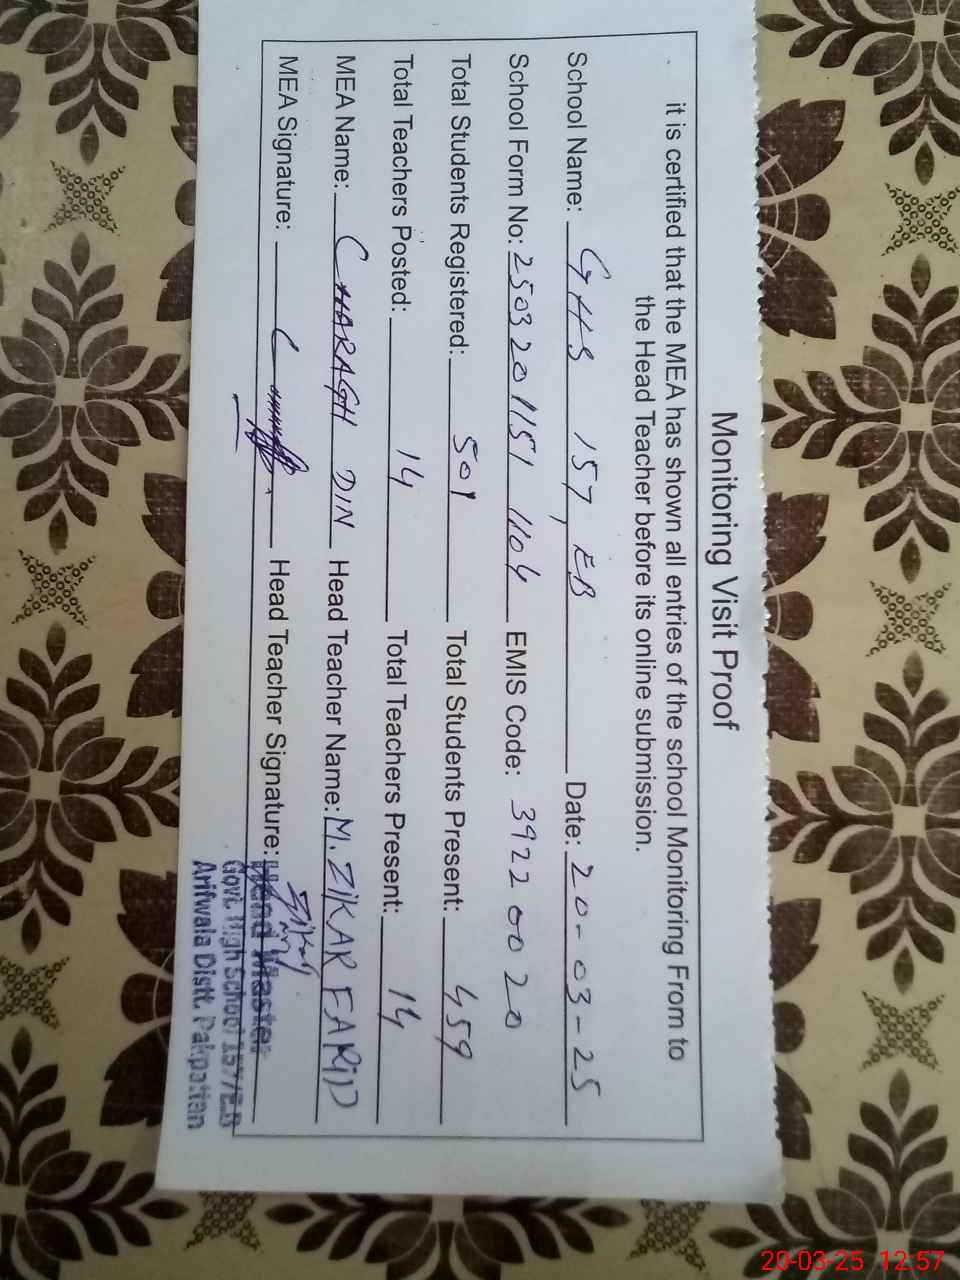 Monitoring Visit Proof
it is certified that the MEA has shown all entries of the school Monitoring From to
the Head Teacher before its online submission.
School Name: GHS 157, EB Date: 20-03-25
School Form No: 2503201151 1104 EMIS Code: 39220020
Total Students Registered: 501 Total Students Present: 459
Total Teachers Posted: 14 Total Teachers Present: 14
MEA Name: CHARAGH DIN Head Teacher Name: M. ZIKAR FARID
MEA Signature: Head Teacher Signature:
Head Master
Govt. High School 157/E.B
Arifwala Distt. Pakpattan
20-03-25 12:57